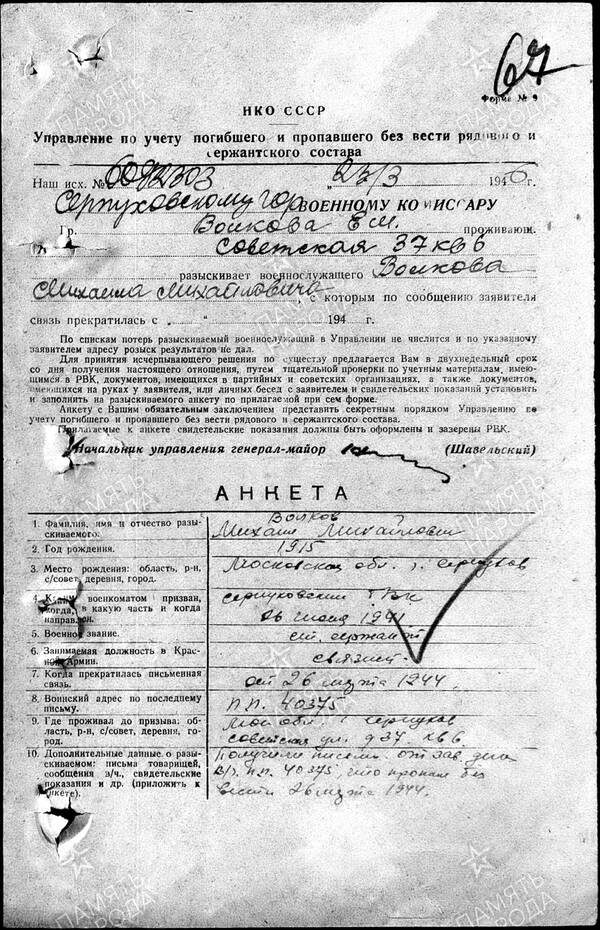 67
Форма № 9
НКО СССР
Управление по учету погибшего и пропавшего без вести рядового и
сержантского состава
Наш исх. № 6092303 „23/3 1946 г.
Серпуховскому гор ВОЕННОМУ КОМИССАРУ
Гр. Волкова Е М. проживающ.
Советская 37 кв 6
разыскивает военнослужащего Волкова
Михаила Михайловича, с которым по сообщению заявителя
связь прекратилась с „ “ 194 г.
По спискам потерь разыскиваемый военнослужащий в Управлении не числится и по указанному
заявителем адресу розыск результатов не дал.
Для принятия исчерпывающего решения по существу предлагается Вам в двухнедельный срок
со дня получения настоящего отношения, путем тщательной проверки по учетным материалам, имею-
щимся в РВК, документов, имеющихся в партийных и советских организациях, а также документов,
имеющихся на руках у заявителя, или личных бесед с заявителем и свидетельских показаний установить
и заполнить на разыскиваемого анкету по прилагаемой при сем форме.
Анкету с Вашим обязательным заключением представить секретным порядком Управлению по
учету погибшего и пропавшего без вести рядового и сержантского состава.
Прилагаемые к анкете свидетельские показания должны быть оформлены и заверены РВК.
Начальник управления генерал-майор (Шавельский)
АНКЕТА
1. Фамилия, имя и отчество разы-
скиваемого.
Волков
Михаил Михайлович
2. Год рождения.
1915
3. Место рождения: область, р-н,
с/совет, деревня, город.
Московская обл. г. Серпухов
4. Каким военкоматом призван,
когда, в какую часть и когда
направлен.
Серпуховский ГВК
26 июня 1941
5. Военное звание.
ст. сержант
6. Занимаемая должность в Крас-
ной Армии.
связист.
7. Когда прекратилась письменная
связь.
от 26 марта 1944.
8. Воинский адрес по последнему
письму.
п.п. 40375
9. Где проживал до призыва: об-
ласть, р-н, с/совет, деревня, го-
род.
Мос обл. г Серпухов
Советская ул. д 37 кв 6
10. Дополнительные данные о разы-
скиваемом: письма товарищей,
сообщения в/ч., свидетельские
показания и др. (приложить к
анкете).
Получили письмо от зав. дел
В/ч п.п. 40375, что пропал без
вести 26 марта 1944.
ПАМЯТЬ
НАРОДА